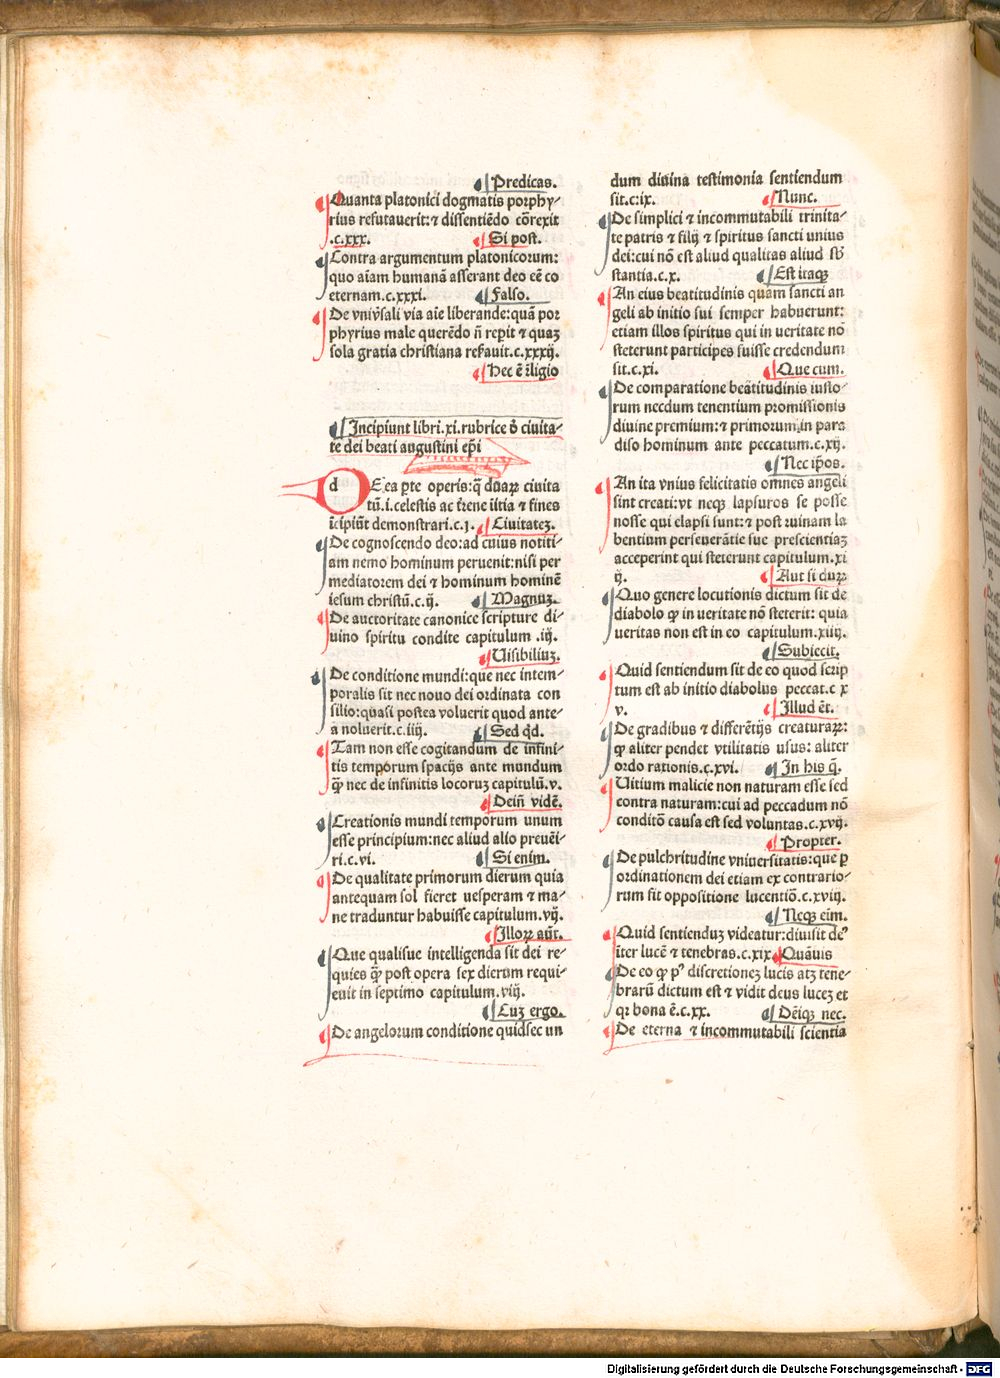 Predicas.
Quanta platonici dogmatis porphy-
rius refutauerit: ⁊ dissentiēdo cōrexit
.c.xxx. Si post.
Contra argumentum platonicorum:
quo aīam humanā asserant deo eē co
eternam.c.xxxi. Falso.
De vnīv̄sali via aīe liberande: quā por
phyrius male querēdo n̄ repīt ⁊ quaꝫ
sola gratia christiana res̄auit.c.xxxij.
Hec ē r̄ligio
Incipiunt libri.xi.rubrice ð ciuita-
te dei beati augustini ep̄i
dE ea ꝑte operis: q̄ duaꝝ ciuita
tū.i.celestis ac t̄rene īitia ⁊ fines
īcipiūt demonstrari.c.j. Ciuitateꝫ.
De cognoscendo deo: ad cuius notiti-
am nemo hominum peruenit: nisi per
mediatorem dei ⁊ hominum hominē
iesum christū.c.ij. Magnuꝫ.
De auctoritate canonice scripture di-
uino spiritu condite capitulum .iij.
Uisibiliuꝫ.
De conditione mundi: que nec intem-
poralis sit nec nouo dei ordinata con
silio: quasi postea voluerit quod ante-
a noluerit.c.iiij. Sed qd.
Tam non esse cogitandum de infini-
tis temporum spacijs ante mundum
q̄ꝫ nec de infinitis locoruꝫ capitulū.v.
Dein̄ vidē.
Creationis mundi temporum unum
esse principium: nec aliud alio preuēi-
ri.c.vi. Si enim.
De qualitate primorum dierum quia
antequam sol fieret uesperam ⁊ ma-
ne traduntur habuisse capitulum.vij.
Illoꝝ aūt.
Que qualisue intelligenda sit dei re-
quies q̄ꝫ post opera sex dierum requi-
euit in septimo capitulum.viij.
Cuꝫ ergo.
De angelorum conditione quidsec un
dum diuina testimonia sentiendum
sit.c.ix. Nunc.
De simplici ⁊ incommutabili trinita-
te patris ⁊ filij ⁊ spiritus sancti unius
dei: cui nō est aliud qualitas aliud sb̄
stantia.c.x. Est itaqꝫ
An eius beatitudinis quam sancti an
geli ab initio sui semper habuerunt:
etiam illos spiritus qui in ueritate nō
steterunt participes fuisse credendum
sit.c.xi. Que cum.
De comparatione beātitudinis iusto-
rum necdum tenentium promissionis
diuine premium: ⁊ primorum in para
diso hominum ante peccatum.c.xij.
Nec ip̄os.
An ita vnius felicitatis omnes angeli
sint creati: vt neqꝫ lapsuros se posse
nosse qui elapsi sunt: ⁊ post ruinam la
bentium perseuerātie sue prescientiaꝫ
acceperint qui steterunt capitulum.xi
ij. Aut si duꝝ
Quo genere locutionis dictum sit de
diabolo ꝙ in ueritate nō steterit: quia
ueritas non est in eo capitulum.xiiij.
Subiecit.
Quid sentiendum sit de eo quod scrip
tum est ab initio diabolus peccat.c x
v. Illud ēt.
De gradibus ⁊ differētijs creaturaꝝ:
ꝙ aliter pendet vtilitatis usus: aliter
ordo rationis.c.xvi. In his q̄.
Uitium malicie non naturam esse sed
contra naturam: cui ad peccadum nō
conditō causa est sed voluntas.c.xvij.
Propter.
De pulchritudine vniuersitatis: que ꝑ
ordinationem dei etiam ex contrario-
rum fit oppositione lucentiō.c.xviij.
Neqꝫ eīm.
Quid sentienduꝫ videatur: diuisit de⁹
īter lucē ⁊ tenebras.c.xix Quāuis
De eo ꝙ p⁹ discretioneꝫ lucis atꝫ tene-
brarū dictum est ⁊ vidit deus luceꝫ et
qꝛ bona ē.c.xx. Dēiqꝫ nec.
De eterna ⁊ incommutabili scientia
Digitalisierung gefördert durch die Deutsche Forschungsgemeinschaft - DFG